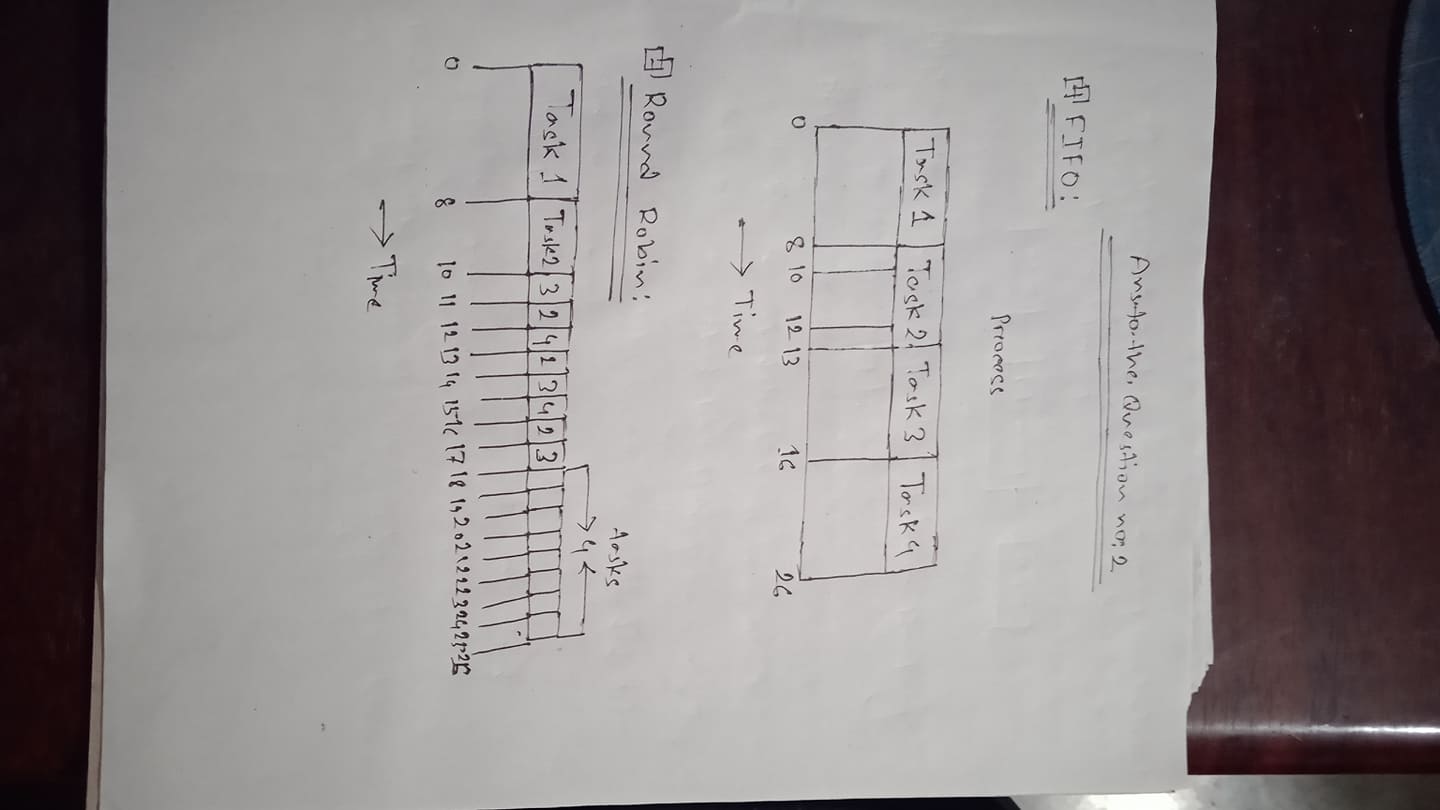 Ans.to.the. Question no: 2
FIFO:
Process
Task 1 Task 2 Task 3 Task 4
0 8 10 12 13 16 26
→ Time
Round Robin:
tasks
→ 4 ←
Task 1 Task2 3 2 4 2 3 4 2 3
0 8 10 11 12 13 14 15 16 17 18 19 20 21 22 23 24 25 26
→ Time